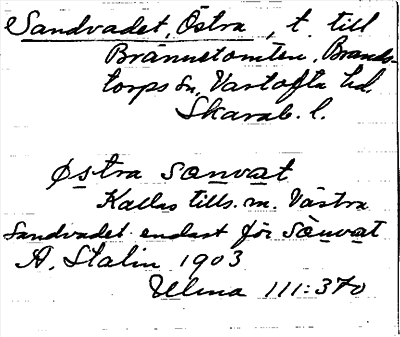 Sandvadet, Östra, t. till
Brännetomten, Brands-
torps sn, Vartofta hd,
Skarab. l.
Østra sanvat
Kallas tills. m. Västra
Sandvadet endast för Sanvat
A. Stalin 1903
Ulma 111:370